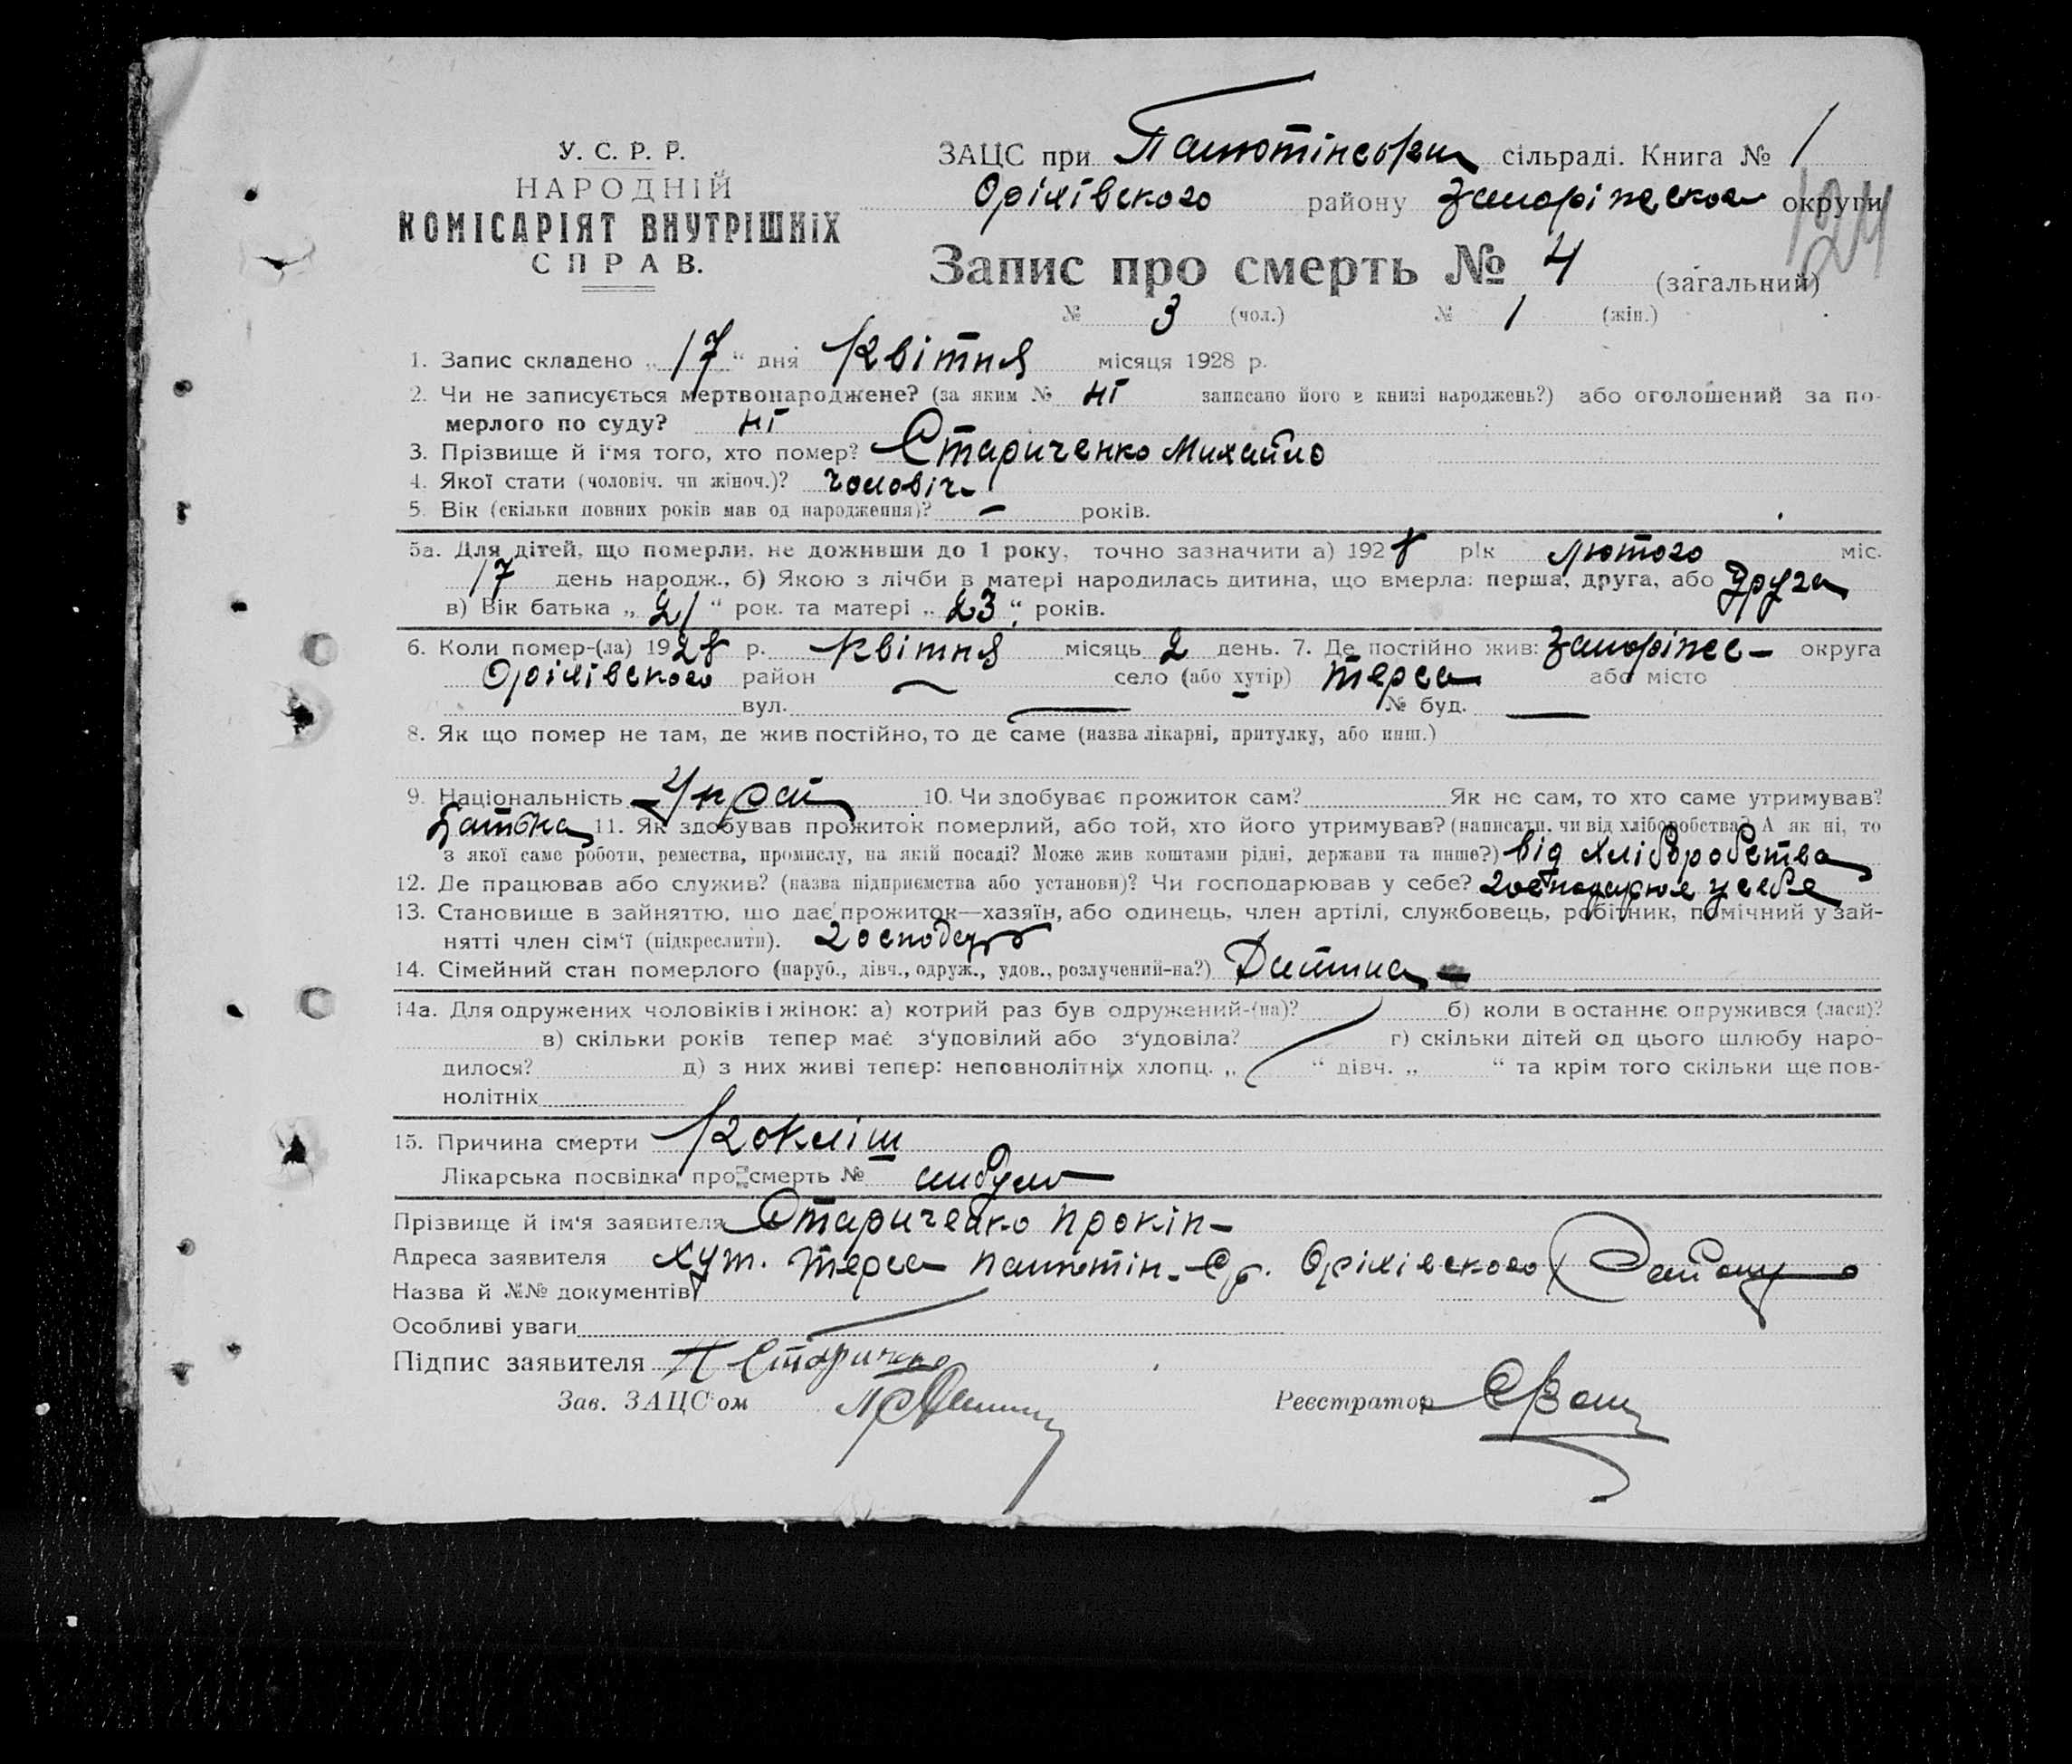 У. С. Р. Р.
НАРОДНІЙ
КОМІСАРІЯТ ВНУТРІШНІХ
СПРАВ.
ЗАЦС при сільраді. Книга № 1
Орілівского району округи
124
Запис про смерть № 4 (загальний)
№ 3 (чол.) № 1 (жін.)
1. Запис складено „17“ дня Квітня місяця 1928 р.
2. Чи не записується мертвонароджене? (за яким № ні записано його в книзі народжень?) або оголошений за по-
мерлого по суду? ні
3. Прізвище й і‘мя того, хто помер? Стариченко Михайло
4. Якої стати (чоловіч. чи жіноч.)? чоловіч
5. Вік (скільки повних років мав од народження)? – років.
5а. Для дітей, що померли, не доживши до 1 року, точно зазначити а) 1928 рік лютого міс.
17 день народж., б) Якою з лічби в матері народилась дитина, що вмерла: перша, друга, або друга
в) Вік батька „21“ рок. та матері „23“ років.
6. Коли помер-(ла) 1928 р. Квітня місяць 2 день. 7. Де постійно жив: округа
Орілівского район – село (або хутір) Терса або місто
вул. – № буд. –
8. Як що помер не там, де жив постійно, то де саме (назва лікарні, притулку, або инш.)
9. Національність Украї 10. Чи здобуває прожиток сам? Як не сам, то хто саме утримував?
Батько 11. Як здобував прожиток померлий, або той, хто його утримував? (написати, чи від хліборобства? А як ні, то
з якої саме роботи, ремества, промислу, на якій посаді? Може жив коштами рідні, держави та инше?) від хліборобства
12. Де працював або служив? (назва підприємства або установи)? Чи господарював у себе? господарює у себе
13. Становище в зайняттю, що дає прожиток—хазяїн, або одинець, член артілі, службовець, робітник, помічний у зай-
нятті член сім‘ї (підкреслити).
14. Сімейний стан померлого (паруб., дівч., одруж., удов., розлучений-на?) Дитина –
14а. Для одружених чоловіків і жінок: а) котрий раз був одружений-(на)? б) коли в останнє одружився (лася)?
в) скільки років тепер має з‘удовілий або з‘удовіла? г) скільки дітей од цього шлюбу наро-
дилося? д) з них живі тепер: неповнолітніх хлопц. „ “ дівч. „ “ та крім того скільки ще пов-
нолітніх
15. Причина смерти Кокліш
Лікарська посвідка про смерть №
Прізвище й ім‘я заявителя Стариченко Прокіп
Адреса заявителя Хут. Терса Орілівского Району
Назва й №№ документів
Особливі уваги
Підпис заявителя П Стариченко
Зав. ЗАЦС‘ом Реєстратор